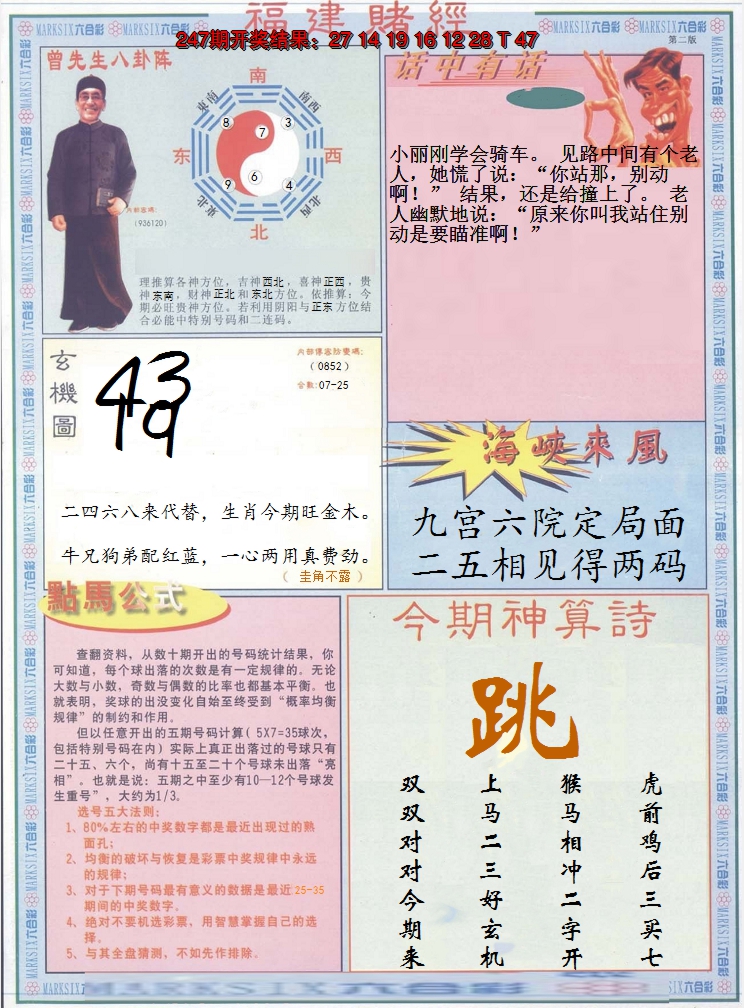 福建賭經
247期开奖结果：27 14 19 16 12 28 T 47
第二版
MARKSIX六合彩
曾先生八卦阵
南
东南
南西
8
7
3
东
西
9
6
4
东北
北西
北
内部密碼：
（936120）
理推算各神方位，吉神西北，喜神正西，贵
神东南，财神正北和东北方位。依推算：今
期必旺贵神方位。若利用阴阳与正东方位结
合必能中特别号码和二连码。
话中有话
小丽刚学会骑车。 见路中间有个老
人，她慌了说：“你站那，别动
啊！” 结果，还是给撞上了。 老
人幽默地说：“原来你叫我站住别
动是要瞄准啊！”
玄機圖
43
49
（0852）
合数:07-25
二四六八来代替，生肖今期旺金木。
牛兄狗弟配红蓝，一心两用真费劲。
（ 圭角不露 ）
海峽來風
九宫六院定局面
二五相见得两码
點馬公式
查翻资料，从数十期开出的号码统计结果，你
可知道，每个球出落的次数是有一定规律的。无论
大数与小数，奇数与偶数的比率也都基本平衡。也
就表明，奖球的出没变化自始至终受到“概率均衡
规律”的制约和作用。
但以任意开出的五期号码计算（5X7=35球次，
包括特别号码在内）实际上真正出落过的号球只有
二十五、六个，尚有十五至二十个号球未出落“亮
相”。也就是说：五期之中至少有10—12个号球发
生重号”，大约为1/3。
选号五大法则：
1、80%左右的中奖数字都是最近出现过的熟
面孔；
2、均衡的破坏与恢复是彩票中奖规律中永远
的规律；
3、对于下期号码最有意义的数据是最近25-35
期间的中奖数字。
4、绝对不要机选彩票，用智慧掌握自己的选
择。
5、与其全盘猜测，不如先作排除。
今期神算詩
跳
双双对对今期来
上马二三好玄机
猴马相冲二字开
虎前鸡后三买七